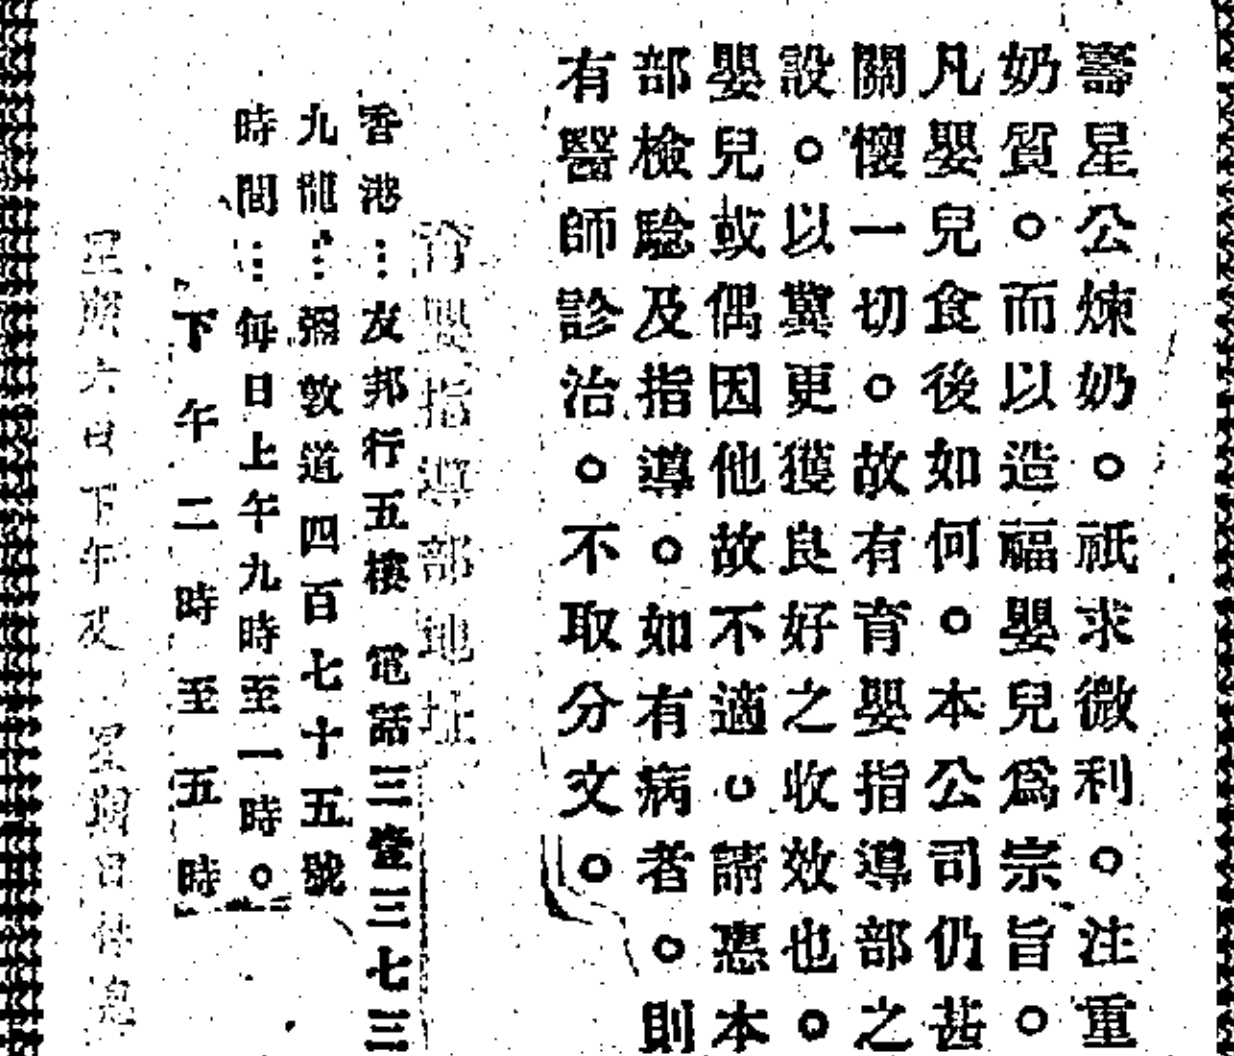 壽星公煉奶。祇求微利。注重
奶質。而以造福嬰兒爲宗旨。
凡嬰兒食後如何。本公司仍甚
關懷一切。故有育嬰指導部之
設。以冀更獲良好之收效也。
嬰兒或偶因他故不適。請惠本
部檢驗及指導。如有病者。則
有醫師診治。不取分文。
育嬰指導部地址
香港：友邦行五樓 電話三壹三七三
九龍：彌敦道四百七十五號
時間：每日上午九時至一時。
下午二時至五時
星期六日下午及 星期日休息